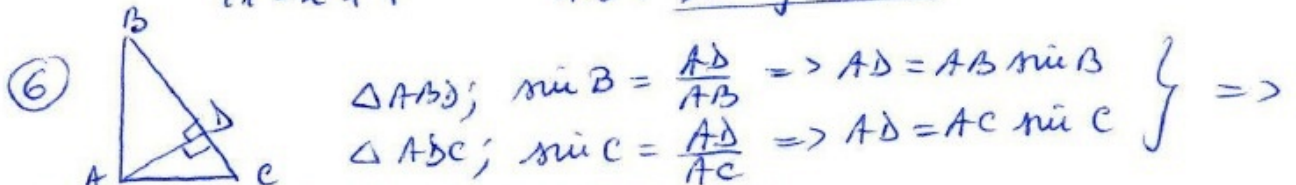 B
⑥ △ABD; sin B = AD/AB => AD = AB sin B } =>
D
△ADC; sin C = AD/AC => AD = AC sin C
A C